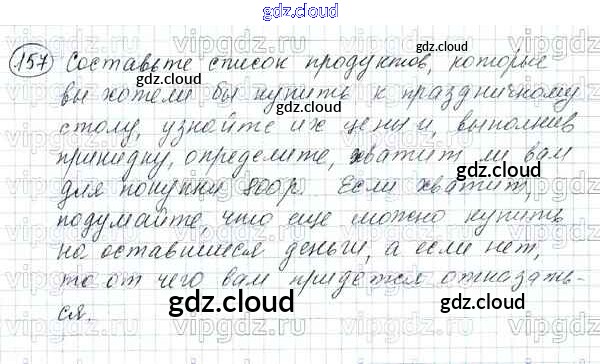 gdz.cloud
157 Составьте список продуктов, которые
вы хотели бы купить к праздничному
столу, узнайте их цены и, выполнив
прикидку, определите, хватит ли вам
для покупки 800р. Если хватит,
подумайте, что еще можно купить
на оставшиеся деньги, а если нет,
то от чего вам придется отказать-
ся.
gdz.cloud
gdz.cloud
gdz.cloud
gdz.cloud
gdz.cloud